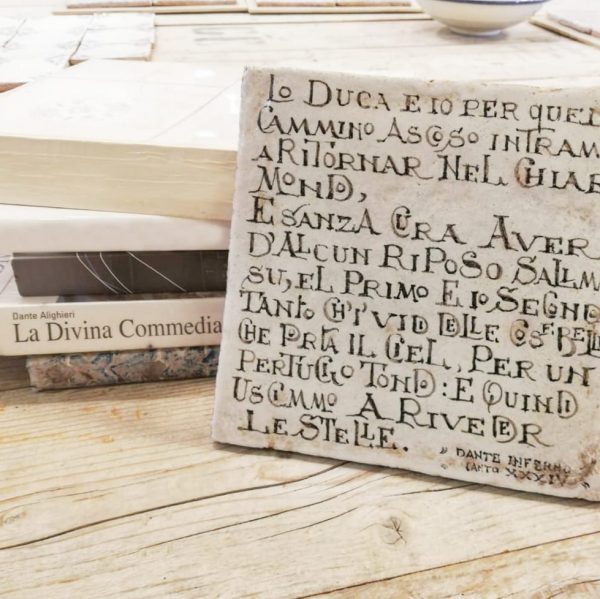 LO DUCA E IO PER QUEL
CAMMINO ASCOSO INTRAM
A RITORNAR NEL CHIAR
MONDO,
E SANZA CURA AVER
D'ALCUN RIPOSO SALIM
SU, EL PRIMO E IO SECOND
TANTO CH'I' VID DELLE COSE BELLE
CHE PORTA IL CIEL, PER UN
PERTUGIO TONDO: E QUINDI
USCIMMO A RIVEDER
LE STELLE.
DANTE INFERNO
CANTO XXXIV
Dante Alighieri
La Divina Commedia